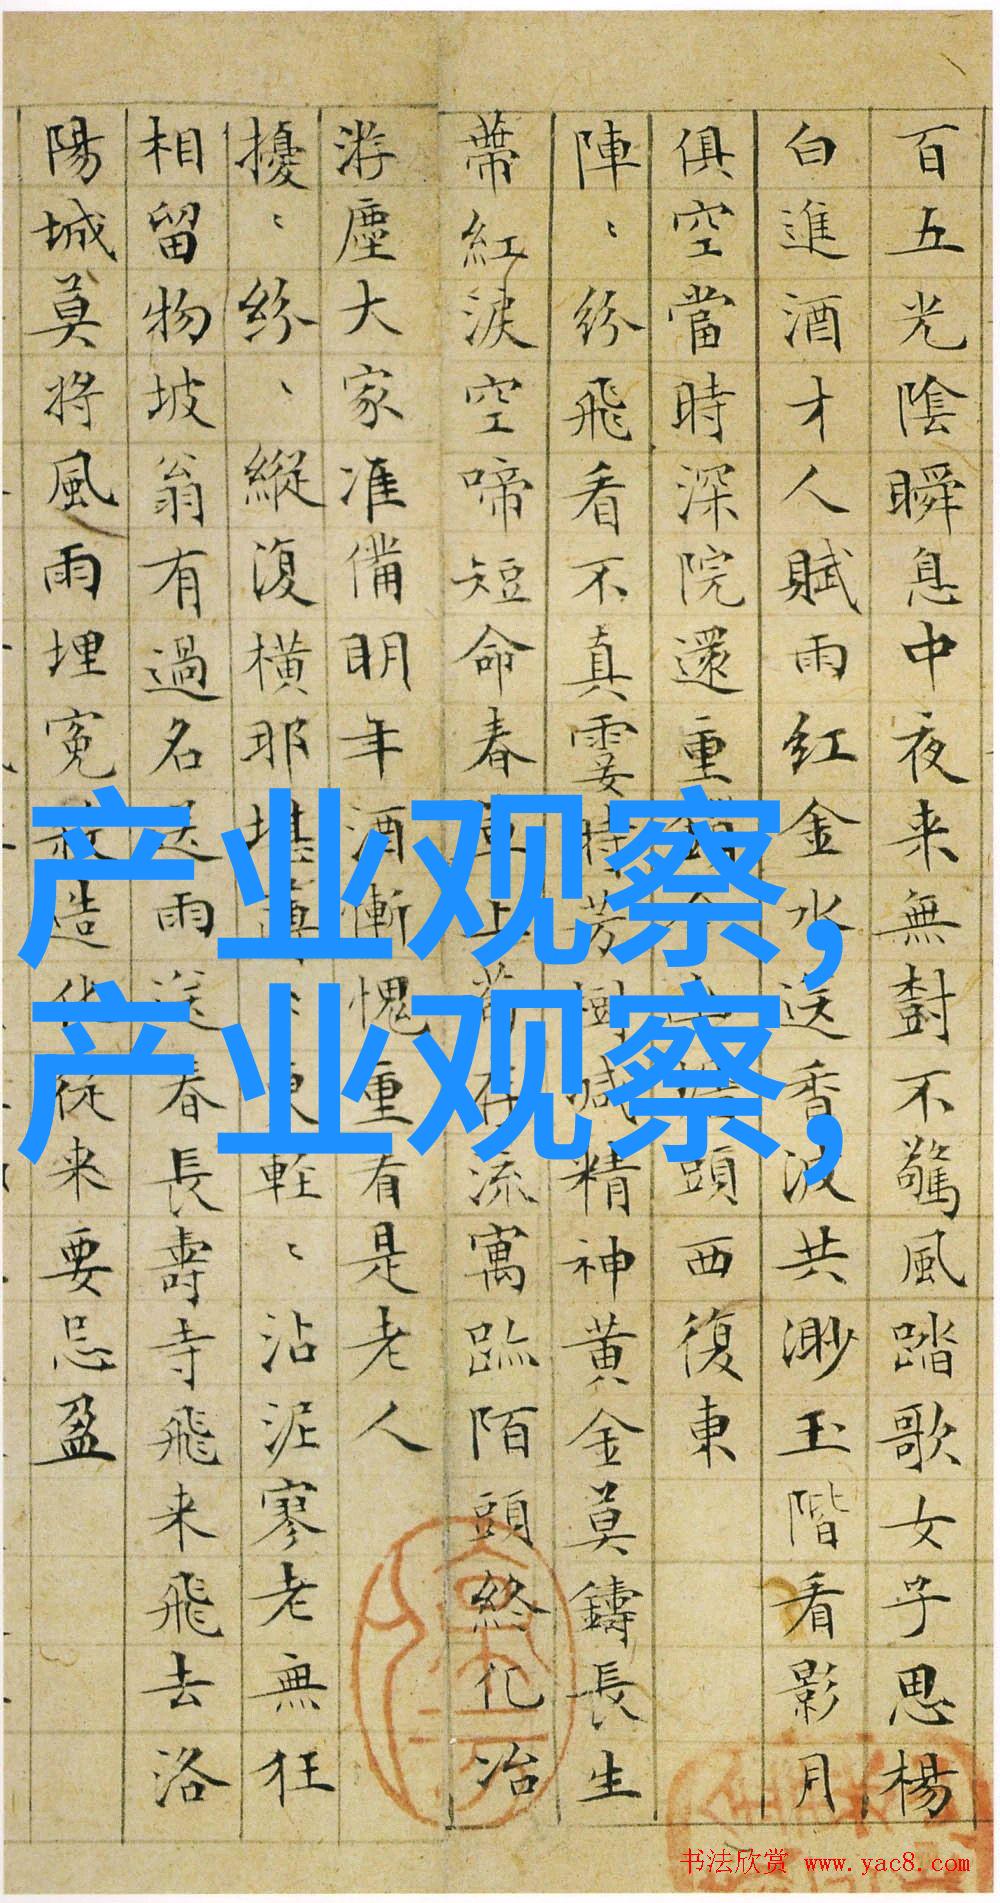 百五光陰瞬息中夜来無對不驚風踏歌女子思楊
白進酒才人賦雨紅金水送香波共渺玉階看影月
俱空當時深院還重頭西復東
陣〻紛飛看不真霎時芳樹減精神黄金莫鑄長生
蒂紅淚空啼短命春上存流寓跡陌頭終化冶
游塵大家准備明年酒慚愧重有是老人
擾〻紛〻縱復横那堪更輊〻沾泥寥老無狂
相留物坡翁有過名送雨送春長壽寺飛来飛去洛
陽城莫將風雨埋冤殺造化従来要忌盈
产业观察,
产业观察,
书法欣赏 www.yac8.com